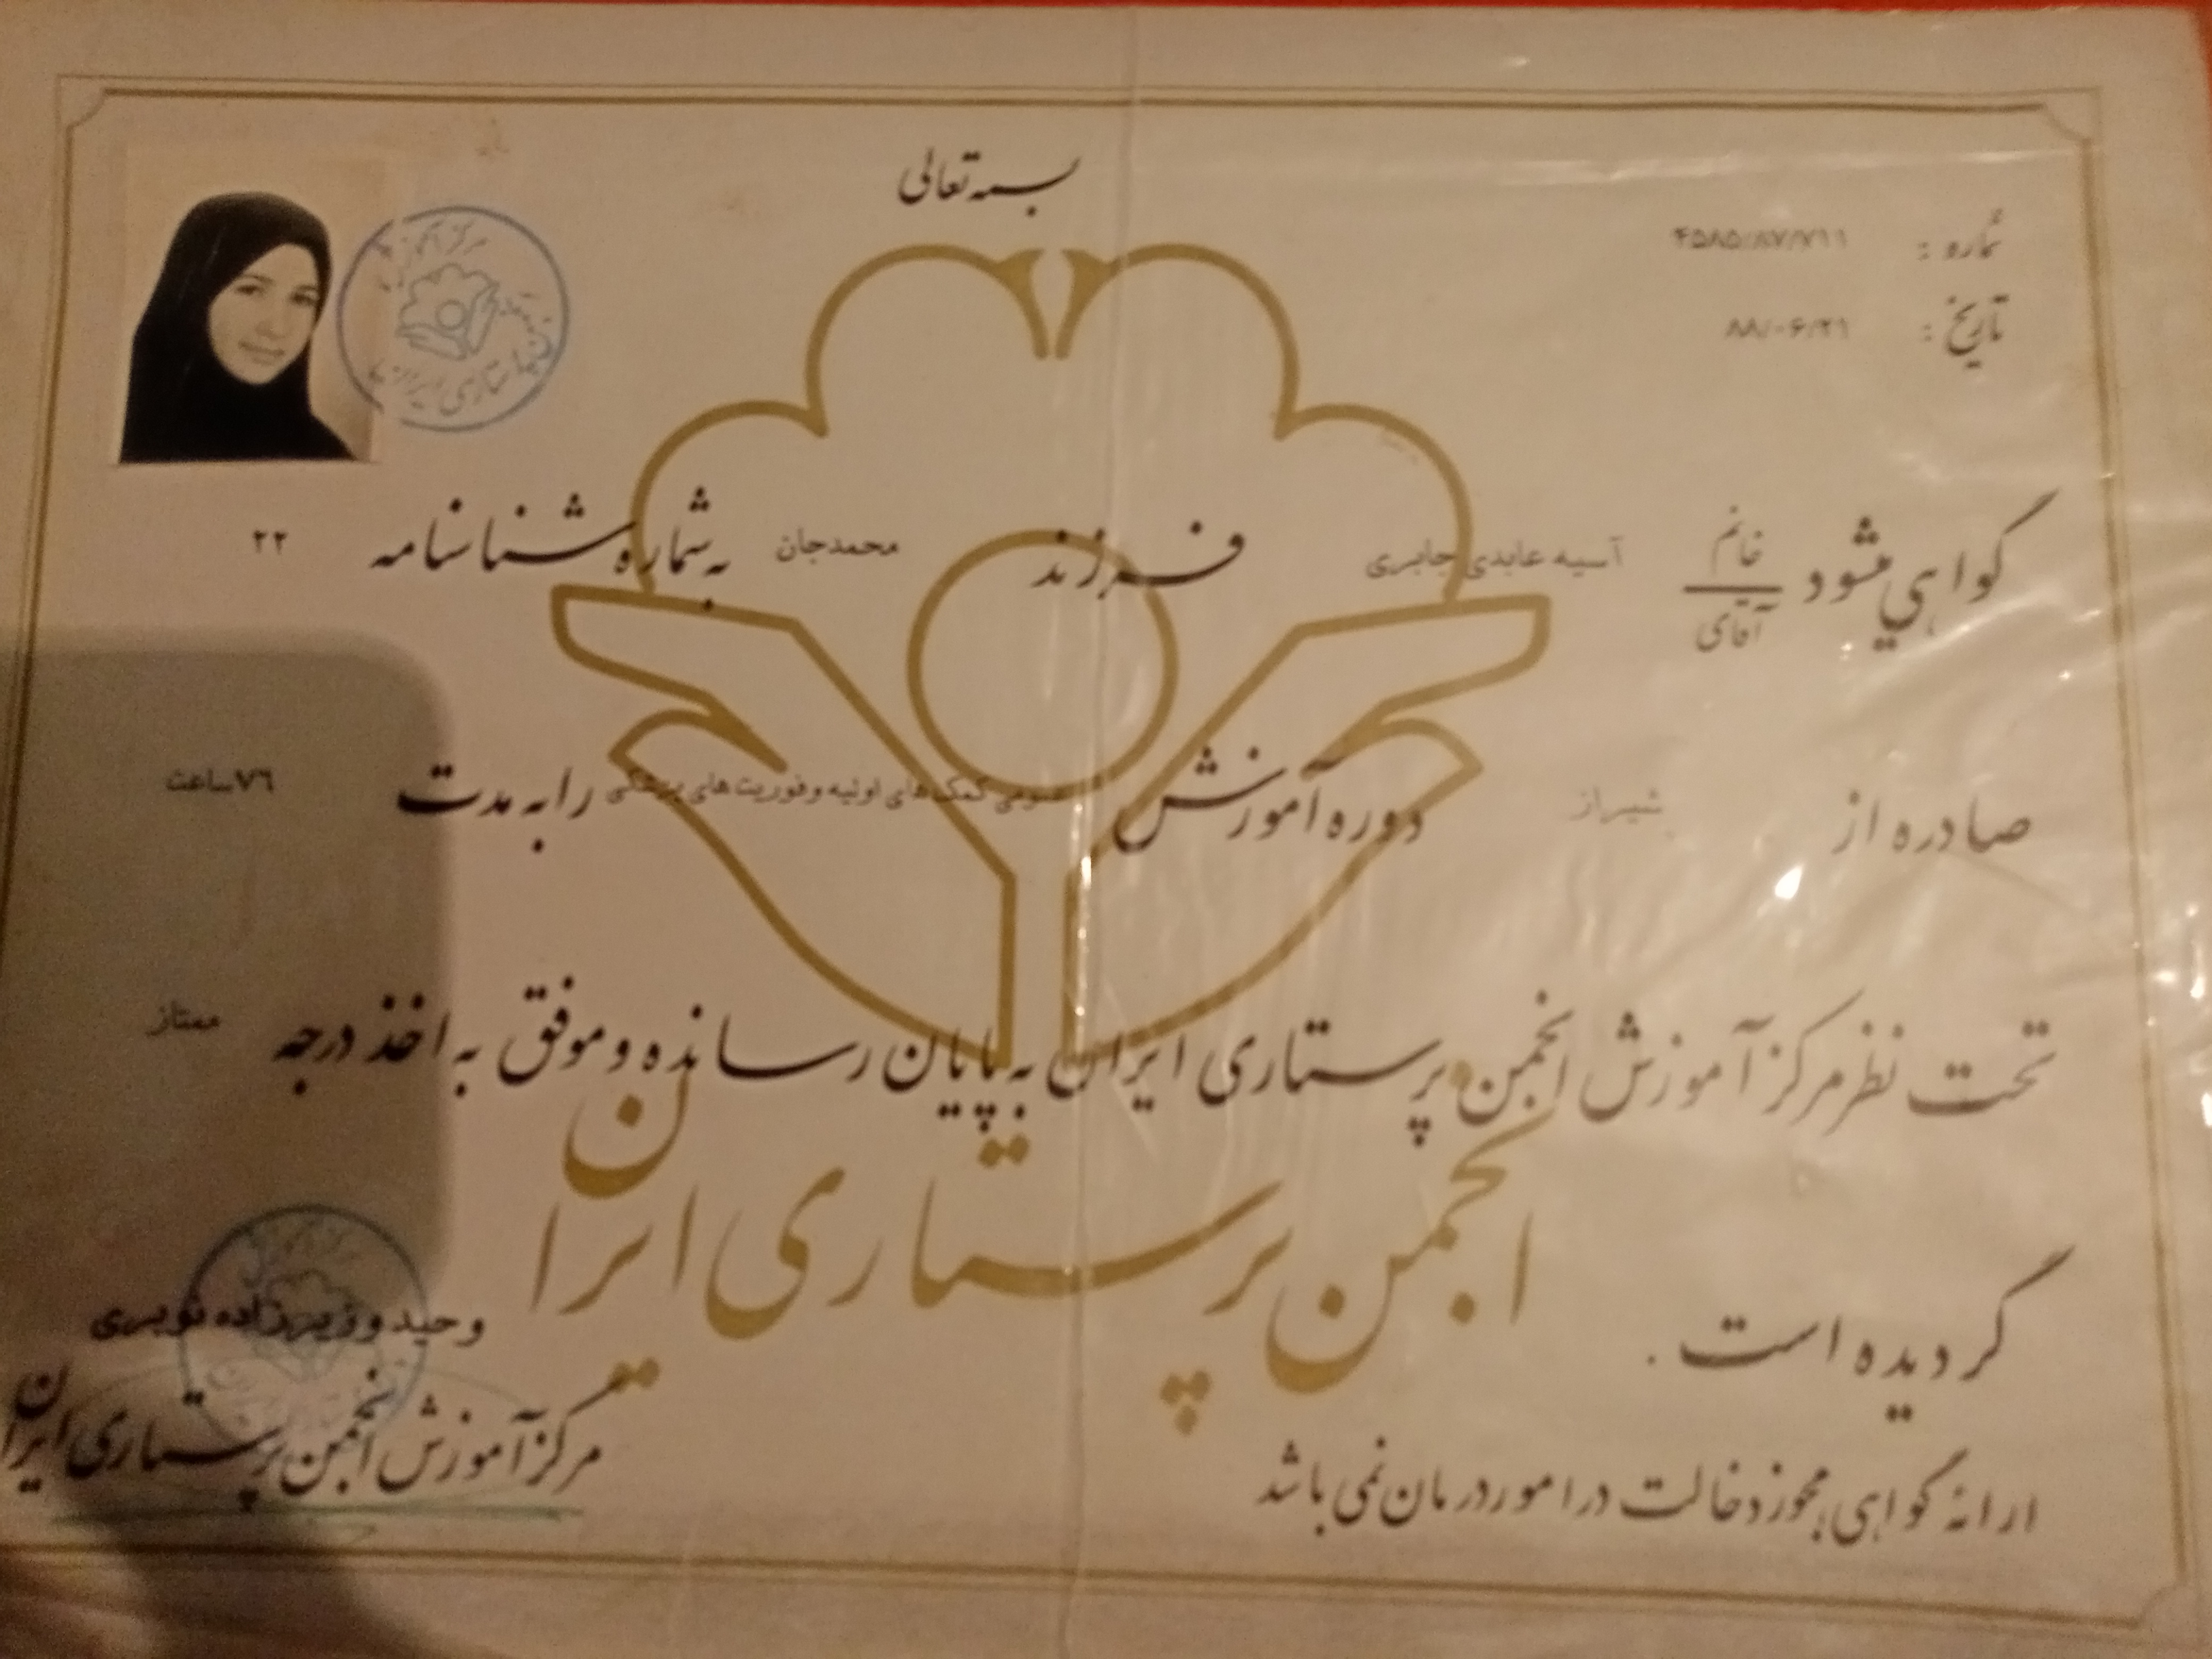 بسمه تعالی
شماره : ۴۵۸۵/۸۷/۷۱۱
تاریخ : ۸۸/۰۶/۲۱
گواهی میشود خانم / آقای آسیه عابدی جابری فرزند محمدجان به شماره شناسنامه ۲۲
صادره از شیراز دوره آموزش عمومی کمک های اولیه و فوریت های پزشکی را به مدت ۷۶ ساعت
تحت نظر مرکز آموزش انجمن پرستاری ایران به پایان رسانده و موفق به اخذ درجه ممتاز
گردیده است .
انجمن پرستاری ایران
وحید وزیرزاده نوبری
مرکز آموزش انجمن پرستاری ایران
ارائه گواهی مجوز دخالت در امور درمان نمی باشد